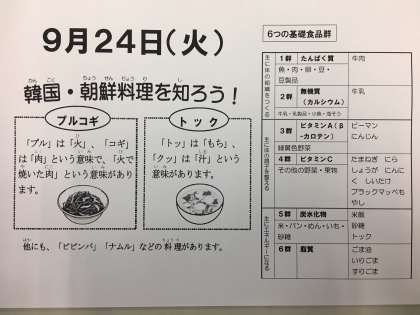 9月24日(火)
韓国・朝鮮料理を知ろう!
プルコギ
「プル」は「火」、「コギ」
は「肉」という意味で、「火で
焼いた肉」という意味があり
ます。
トック
「トッ」は「もち」、
「クッ」は「汁」という
意味があります。
他にも、「ビビンバ」「ナムル」などの料理があります。
6つの基礎食品群
主に体の組織をつくる
1群 たんぱく質 牛肉
魚・肉・卵・豆・
豆製品
2群 無機質 牛乳
(カルシウム)
牛乳・乳製品・小魚・海そう
主に体の調子を整える
3群 ビタミンA(β ピーマン
-カロテン) にんじん
緑黄色野菜
4群 ビタミンC たまねぎ にら
その他の野菜・果物 しょうが にんに
く しいたけ
ブラックマッペも
やし
主にエネルギーになる
5群 炭水化物 米飯
米・パン・めん・いも・ 砂糖
砂糖 トック
6群 脂質 ごま油
いりごま
すりごま